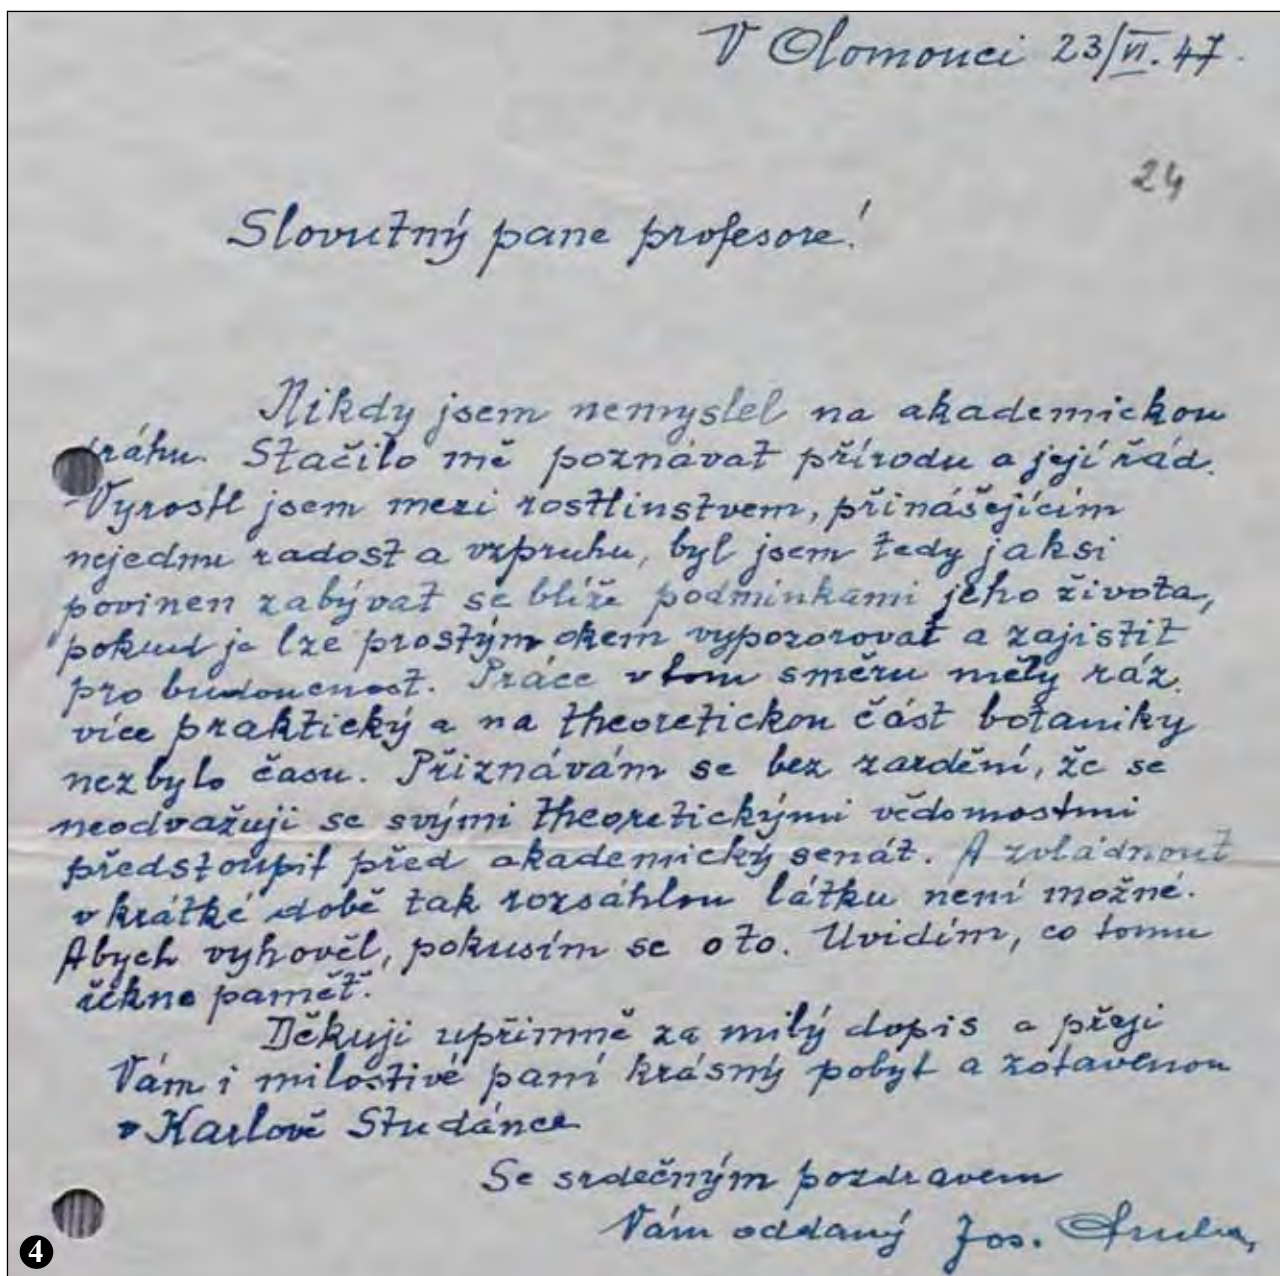 V Olomouci 23/VI. 47.
24
Slovutný pane profesore!
Nikdy jsem nemyslel na akademickou
dráhu. Stačilo mě poznávat přírodu a její řád.
Vyrostl jsem mezi rostlinstvem, přinášejícím
nejednu radost a vzpruhu, byl jsem tedy jaksi
povinen zabývat se blíže podmínkami jeho života,
pokud je lze prostým okem vypozorovat a zajistit
pro budoucnost. Práce v tom směru měly ráz
více praktický a na theoretickou část botaniky
nezbylo času. Přiznávám se bez zardění, že se
neodvažuji se svými theoretickými vědomostmi
předstoupit před akademický senát. A zvládnout
v krátké době tak rozsáhlou látku není možné.
Abych vyhověl, pokusím se o to. Uvidím, co tomu
řekne paměť.
Děkuji upřímně za milý dopis a přeji
Vám i milostivé paní krásný pobyt a zotavenou
v Karlově Studánce
Se srdečným pozdravem
Vám oddaný Jos.
4